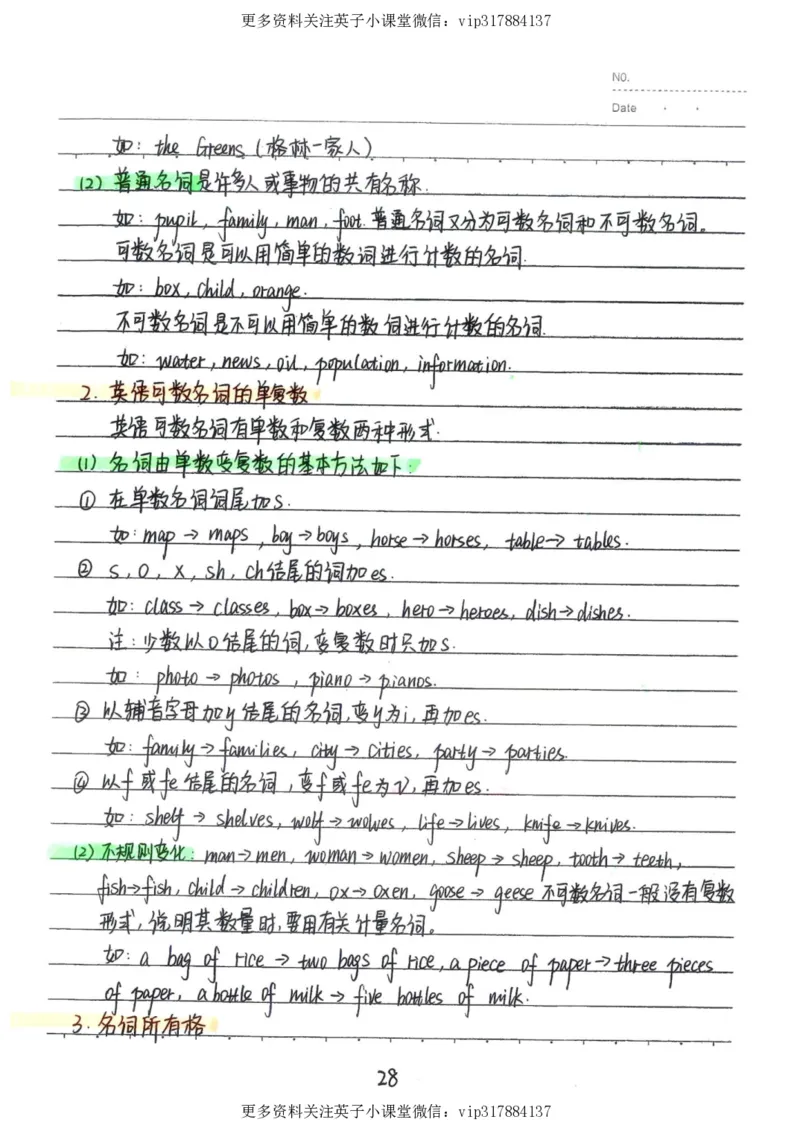 更多资料关注英子小课堂微信：vip317884137
NO.
Date
如：the Greens（格林一家人）
(2) 普通名词是许多人或事物的共有名称.
如：pupil, family, man, foot. 普通名词又分为可数名词和不可数名词。
可数名词是可以用简单的数词进行计数的名词.
如：box, child, orange.
不可数名词是不可以用简单的数词进行计数的名词.
如：water, news, oil, population, information.
2. 英语可数名词的单复数
英语可数名词有单数和复数两种形式.
(1) 名词由单数变复数的基本方法如下：
① 在单数名词词尾加s.
如：map → maps, boy → boys, horse → horses, table → tables.
② s, o, x, sh, ch结尾的词加es.
如：class → classes, box → boxes, hero → heroes, dish → dishes.
注：少数以o结尾的词,变复数时只加s.
如：photo → photos, piano → pianos.
③ 以辅音字母加y结尾的名词,变y为i,再加es.
如：family → families, city → cities, party → parties.
④ 以f或fe结尾的名词,变f或fe为v,再加es.
如：shelf → shelves, wolf → wolves, life → lives, knife → knives.
(2) 不规则变化：man → men, woman → women, sheep → sheep, tooth → teeth,
fish → fish, child → children, ox → oxen, goose → geese 不可数名词一般没有复数
形式,说明其数量时,要用有关计量名词。
如：a bag of rice → two bags of rice, a piece of paper → three pieces
of paper, a bottle of milk → five bottles of milk.
3. 名词所有格
28
更多资料关注英子小课堂微信：vip317884137